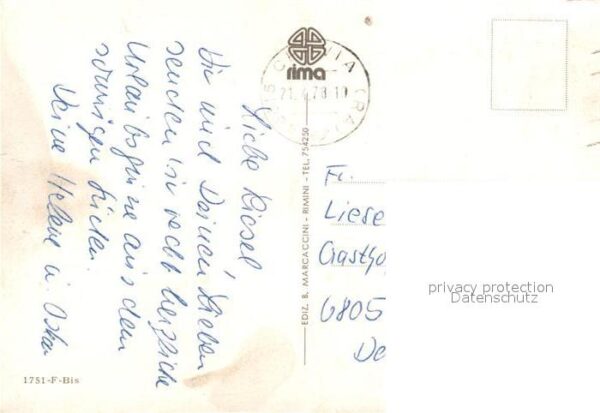 Liebe Liesel
Dir und Deinen Lieben
senden wir recht herzliche
Urlaubsgrüße aus dem
sonnigen Süden.
Deine Helene u. Oskar
rima
21. 78.19
EDIZ. B. MARCACCINI - RIMINI - TEL. 754250
Fr.
Liese
Gastho
6805
De
privacy protection
Datenschutz
1751-F-Bis